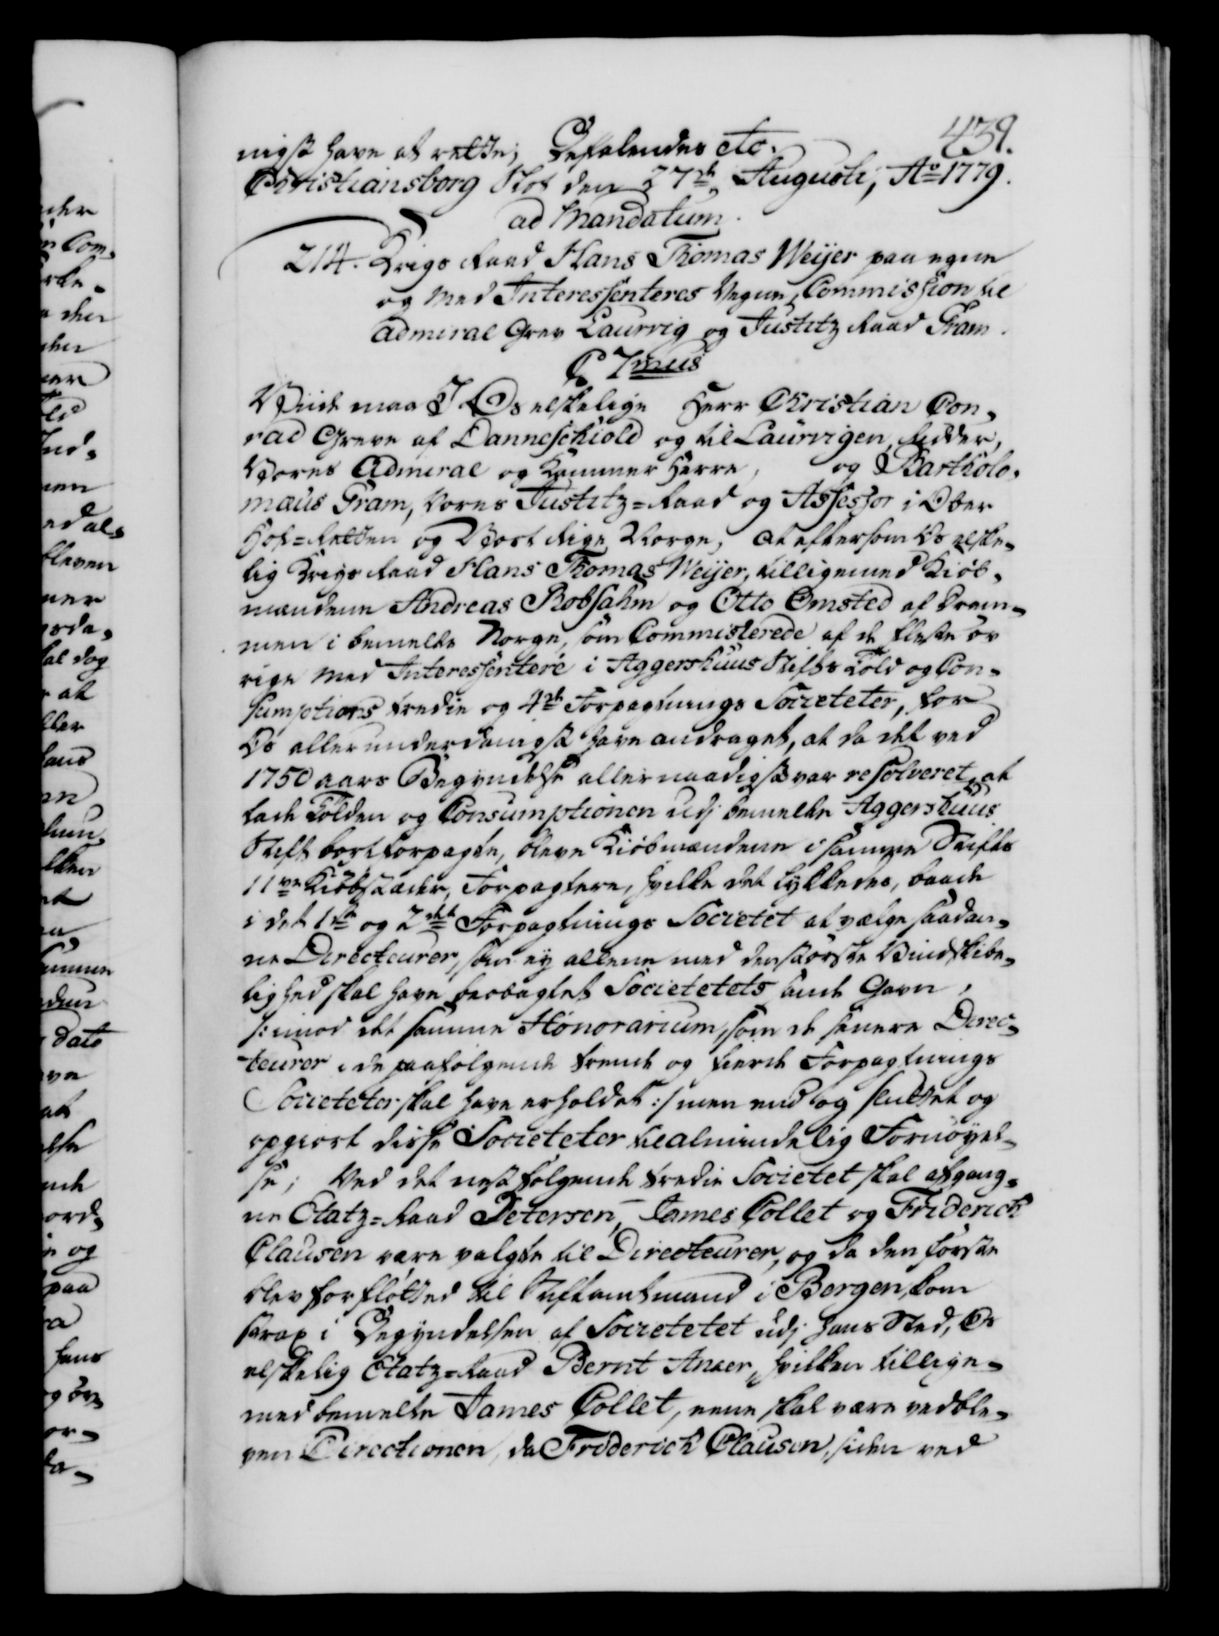 439.
nigst have at rette; Befalendes etc.
Christiansborg Slot den 27de Augusti, Ao 1779.
ad Mandatum.
214. Krigs Raad Hans Thomas Weijer paa egne
og Med Interessenteres Vegne, Commission til
Admiral Grev Laurvig og Justitz Raad Gram.
C 7mus
Viide maa I Os elskelige Herr Christian Con-
rad Greve af Danneschiold og til Laurvigen, Ridder,
Vores Admiral og Kammer Herre, og Bartholo-
mæus Gram, Vores Justitz=Raad og Assessor i Over
Hof=Retten og Vort Rige Norge; At eftersom Os elske-
lig Krigs Raad Hans Thomas Weijer, tilligemed Kiøb-
mændene Andreas Robsahm og Otto Omsted af Dram-
men i bemelte Norge, som Committerede af de fleste øv
rige Med Interessentere i Aggershuus Stifts Told og Con-
sumptions tredie og 4de Forpagtnings Societeter, for
Os allerunderdanigst have andraget, at da det ved
1750 aars Begyndelse allernaadigst var resolveret, at
lade Tolden og Consumptionen udj bemelte Aggershuus
Stift bortforpagte, bleve Kiøbmændene i samme Stifts
11ve Kiøbstæder, Forpagtere, hvilke det lykkedes, baade
i det 1ste og 2det Forpagtnings Societet at vælge saadan-
ne Directeurer, som ey allene med den største Vindskibe-
lighed skal have beobagtet Societetets sande Gavn,
/: imod det samme Honorarium, som de senere Direc-
teurer i de paafølgende tredie og fierde Forpagtnings
Societeter skal have erholdet :/ men end og sluttet og
opgiort disse Societeter til almindelig Fornøyel-
se; Ved det nest følgende tredie Societet skal afgang-
ne Etatz=Raad Petersen, James Collet og Friderich
Clausen være valgte til Directeurer, og da den første
blev forfløtted til Stiftamtmand i Bergen, kom
strax i Begyndelsen af Societetet udj hans Sted, Os
elskelig Etatz=Raad Bernt Anker, hvilken tillige-
med bemelte James Collet, ene skal være vedble-
ven Directionen, da Friderich Clausen, siden ved